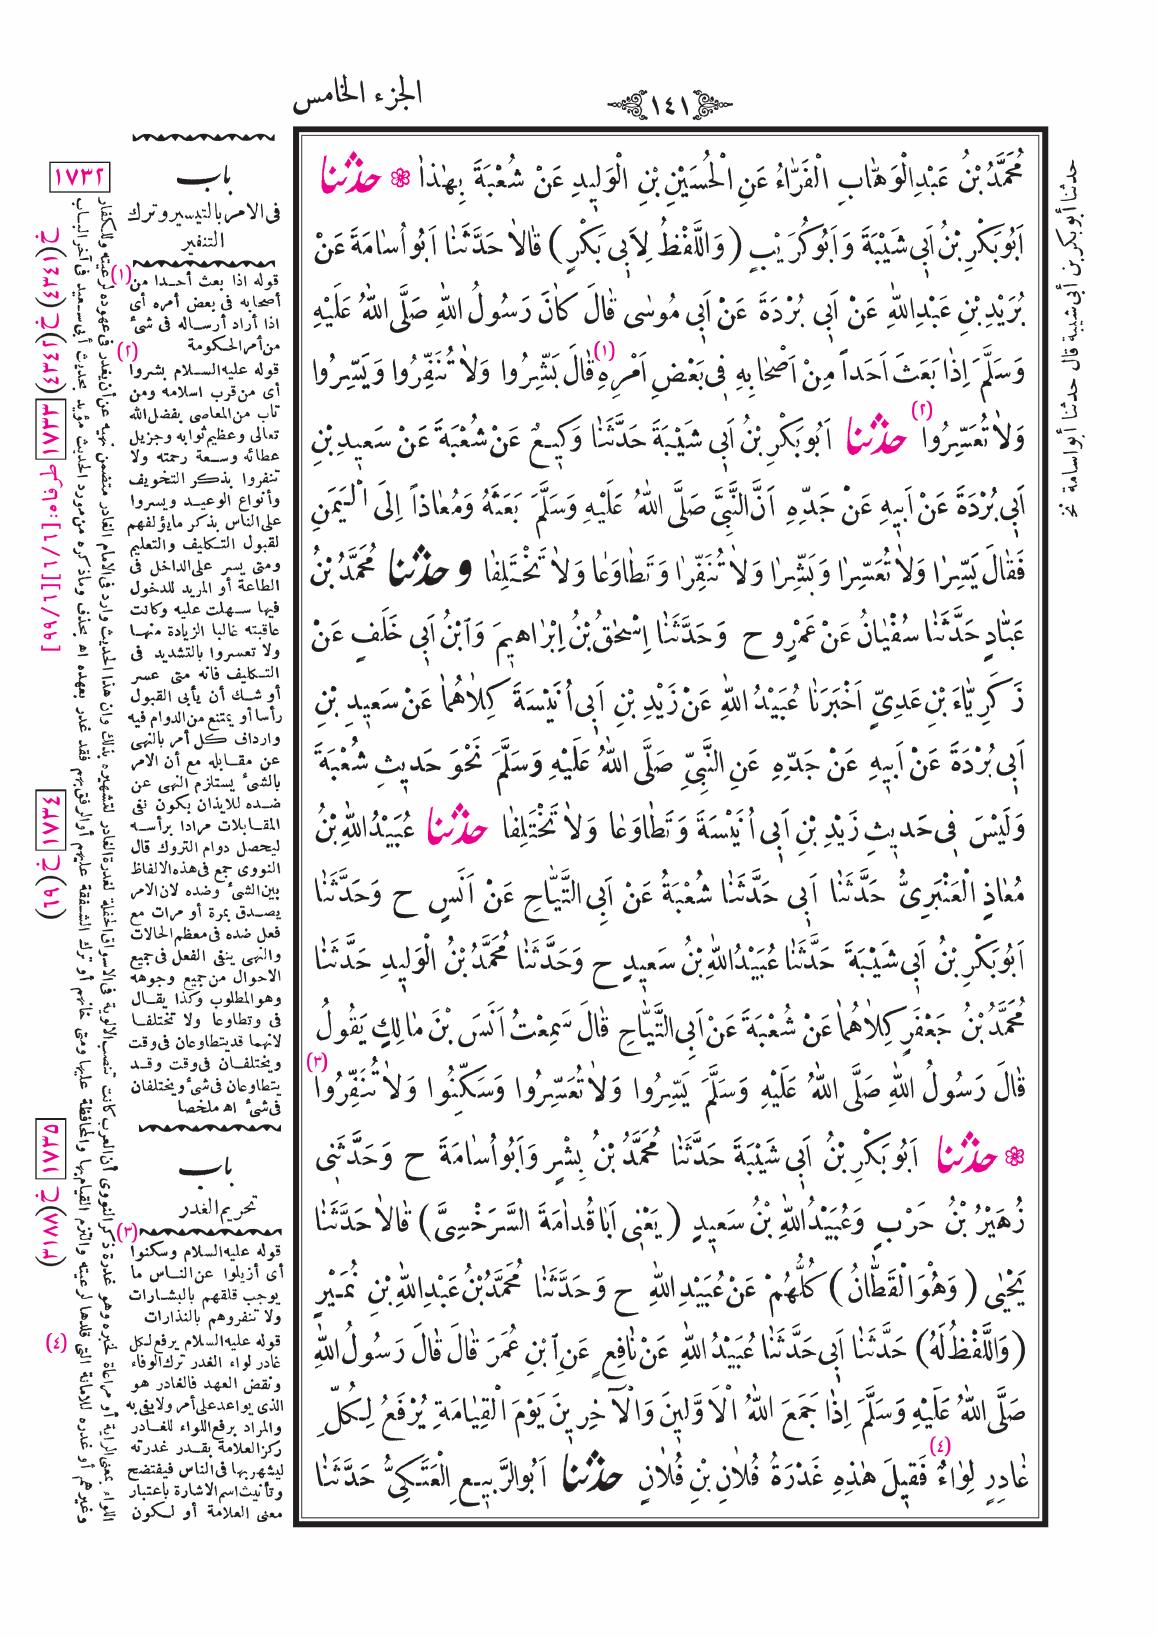 الجزء الخامس
١٤١
مُحَمَّدُ بْنُ عَبْدِالْوَهَّابِ الْفَرَّاءُ عَنِ الْحُسَيْنِ بْنِ الْوَلِيدِ عَنْ شُعْبَةَ بِهٰذَا ❁ حدثنا
اَبُوبَكْرِ بْنُ اَبِي شَيْبَةَ وَاَبُو كُرَيْبٍ ( وَاللَّفْظُ لِاَبِي بَكْرٍ ) قَالاَ حَدَّثَنَا اَبُو اُسَامَةَ عَنْ
بُرَيْدِ بْنِ عَبْدِاللهِ عَنْ اَبِي بُرْدَةَ عَنْ اَبِي مُوسٰى قَالَ كَانَ رَسُولُ اللهِ صَلَّى اللهُ عَلَيْهِ
وَسَلَّمَ اِذَا بَعَثَ اَحَداً مِنْ اَصْحَابِهِ فِي بَعْضِ اَمْرِهِ (١) قَالَ بَشِّرُوا وَلاَ تُنَفِّرُوا وَيَسِّرُوا
وَلاَ تُعَسِّرُوا (٢) حدثنا اَبُوبَكْرِ بْنُ اَبِي شَيْبَةَ حَدَّثَنَا وَكِيعٌ عَنْ شُعْبَةَ عَنْ سَعِيدِ بْنِ
اَبِي بُرْدَةَ عَنْ اَبِيهِ عَنْ جَدِّهِ اَنَّ النَّبِيَّ صَلَّى اللهُ عَلَيْهِ وَسَلَّمَ بَعَثَهُ وَمُعَاذاً اِلَى الْيَمَنِ
فَقَالَ يَسِّرَا وَلاَ تُعَسِّرَا وَبَشِّرَا وَلاَ تُنَفِّرَا وَتَطَاوَعَا وَلاَ تَخْتَلِفَا وحدثنا مُحَمَّدُ بْنُ
عَبَّادٍ حَدَّثَنَا سُفْيَانُ عَنْ عَمْرٍو ح وَحَدَّثَنَا اِسْحٰقُ بْنُ اِبْرَاهِيمَ وَابْنُ اَبِي خَلَفٍ عَنْ
زَكَرِيَّاءَ بْنِ عَدِيٍّ اَخْبَرَنَا عُبَيْدُ اللهِ عَنْ زَيْدِ بْنِ اَبِي اُنَيْسَةَ كِلاَهُمَا عَنْ سَعِيدِ بْنِ
اَبِي بُرْدَةَ عَنْ اَبِيهِ عَنْ جَدِّهِ عَنِ النَّبِيِّ صَلَّى اللهُ عَلَيْهِ وَسَلَّمَ نَحْوَ حَدِيثِ شُعْبَةَ
وَلَيْسَ فِي حَدِيثِ زَيْدِ بْنِ اَبِي اُنَيْسَةَ وَتَطَاوَعَا وَلاَ تَخْتَلِفَا حدثنا عُبَيْدُ اللهِ بْنُ
مُعَاذٍ الْعَنْبَرِيُّ حَدَّثَنَا اَبِي حَدَّثَنَا شُعْبَةُ عَنْ اَبِي التَّيَّاحِ عَنْ اَنَسٍ ح وَحَدَّثَنَا
اَبُوبَكْرِ بْنُ اَبِي شَيْبَةَ حَدَّثَنَا عُبَيْدُ اللهِ بْنُ سَعِيدٍ ح وَحَدَّثَنَا مُحَمَّدُ بْنُ الْوَلِيدِ حَدَّثَنَا
مُحَمَّدُ بْنُ جَعْفَرٍ كِلاَهُمَا عَنْ شُعْبَةَ عَنْ اَبِي التَّيَّاحِ قَالَ سَمِعْتُ اَنَسَ بْنَ مَالِكٍ يَقُولُ
قَالَ رَسُولُ اللهِ صَلَّى اللهُ عَلَيْهِ وَسَلَّمَ يَسِّرُوا وَلاَ تُعَسِّرُوا وَسَكِّنُوا وَلاَ تُنَفِّرُوا (٣)
❁ حدثنا اَبُوبَكْرِ بْنُ اَبِي شَيْبَةَ حَدَّثَنَا مُحَمَّدُ بْنُ بِشْرٍ وَاَبُو اُسَامَةَ ح وَحَدَّثَنِي
زُهَيْرُ بْنُ حَرْبٍ وَعُبَيْدُ اللهِ بْنُ سَعِيدٍ ( يَعْنِي اَبَا قُدَامَةَ السَّرَخْسِيَّ ) قَالاَ حَدَّثَنَا
يَحْيٰى ( وَهُوَ الْقَطَّانُ ) كُلُّهُمْ عَنْ عُبَيْدِ اللهِ ح وَحَدَّثَنَا مُحَمَّدُ بْنُ عَبْدِ اللهِ بْنِ نُمَيْرٍ
( وَاللَّفْظُ لَهُ ) حَدَّثَنَا اَبِي حَدَّثَنَا عُبَيْدُ اللهِ عَنْ نَافِعٍ عَنِ ابْنِ عُمَرَ قَالَ قَالَ رَسُولُ اللهِ
صَلَّى اللهُ عَلَيْهِ وَسَلَّمَ اِذَا جَمَعَ اللهُ الْاَوَّلِينَ وَالْآخِرِينَ يَوْمَ الْقِيَامَةِ يُرْفَعُ لِكُلِّ
غَادِرٍ لِوَاءٌ (٤) فَقِيلَ هٰذِهِ غَدْرَةُ فُلاَنِ بْنِ فُلاَنٍ حدثنا اَبُو الرَّبِيعِ الْعَتَكِيُّ حَدَّثَنَا
حدثنا أبو بكر بن أبى شيبة قال حدثنا أبو اسامة نخ
باب
فى الامر بالتيسير وترك
التنفير
(١) قوله اذا بعث أحدا من
أصحابه فى بعض أمره أى
اذا أراد أرساله فى شىء
من أمر الحكومة
(٢) قوله عليه السلام بشروا
أى من قرب اسلامه ومن
تاب من المعاصى بفضل الله
تعالى وعظيم ثوابه وجزيل
عطائه وسعة رحمته ولا
تنفروا بذكر التخويف
وأنواع الوعيد ويسروا
على الناس بذكر مايؤلفهم
لقبول التكليف والتعليم
ومتى يسر على الداخل فى
الطاعة أو المريد للدخول
فيها سهلت عليه وكانت
عاقبته غالبا الزيادة منها
ولا تعسروا بالتشديد فى
التكليف فانه متى عسر
أوشك أن يأبى القبول
رأسا أو يمتنع من الدوام فيه
وارداف كل أمر بالنهى
عن مقابله مع أن الامر
بالشىء يستلزم النهى عن
ضده للايذان بكون نفى
المقابلات مرادا برأسه
ليحصل دوام التروك قال
النووى جمع فى هذه الالفاظ
بين الشىء وضده لان الامر
يصدق بمرة أو مرات مع
فعل ضده فى معظم الحالات
والنهى ينفى الفعل فى جميع
الاحوال من جميع وجوهه
وهو المطلوب وكذا يقال
فى وتطاوعا ولا تختلفا
لانهما قد يتطاوعان فى وقت
ويختلفان فى وقت وقد
يتطاوعان فى شىء ويختلفان
فى شىء اه ملخصا
باب
تحريم الغدر
(٣) قوله عليه السلام وسكنوا
أى أزيلوا عن الناس ما
يوجب قلقهم بالبشارات
ولا تنفروهم بالنذارات
(٤) قوله عليه السلام يرفع لكل
غادر لواء الغدر ترك الوفاء
ونقض العهد فالغادر هو
الذى يواعد على أمر ولا يفى به
والمراد برفع اللواء للغادر
ركز العلامة بقدر غدرته
ليشهر بها فى الناس فيفتضح
وتأنيث اسم الاشارة باعتبار
معنى العلامة أو لكون
اللواء بمعنى الراية أو مراعاة لخبره وهو غدرة ذكر النووى أن العرب كانت تنصب الألوية فى الاسواق الحفلة لغدرة الغادر لتشهيره بذلك وان هذا الحديث وارد فى الامام الغادر متضمن نهيه عن أن يغدر فى عهوده لرعيته وللكفار
وغيرهم أو غدره للامانة التى قلدها لرعيته والتزم القيام بها والمحافظة عليها ومتى خانهم أو ترك الشفقة عليهم أو الرفق بهم فقد غدر بعهده اه بحذف وماذكره من مورد الحديث مؤيد بحديث أبى سعيد فى آخر الباب
١٧٣٢
١٧٣٣
١٧٣٤
١٧٣٥